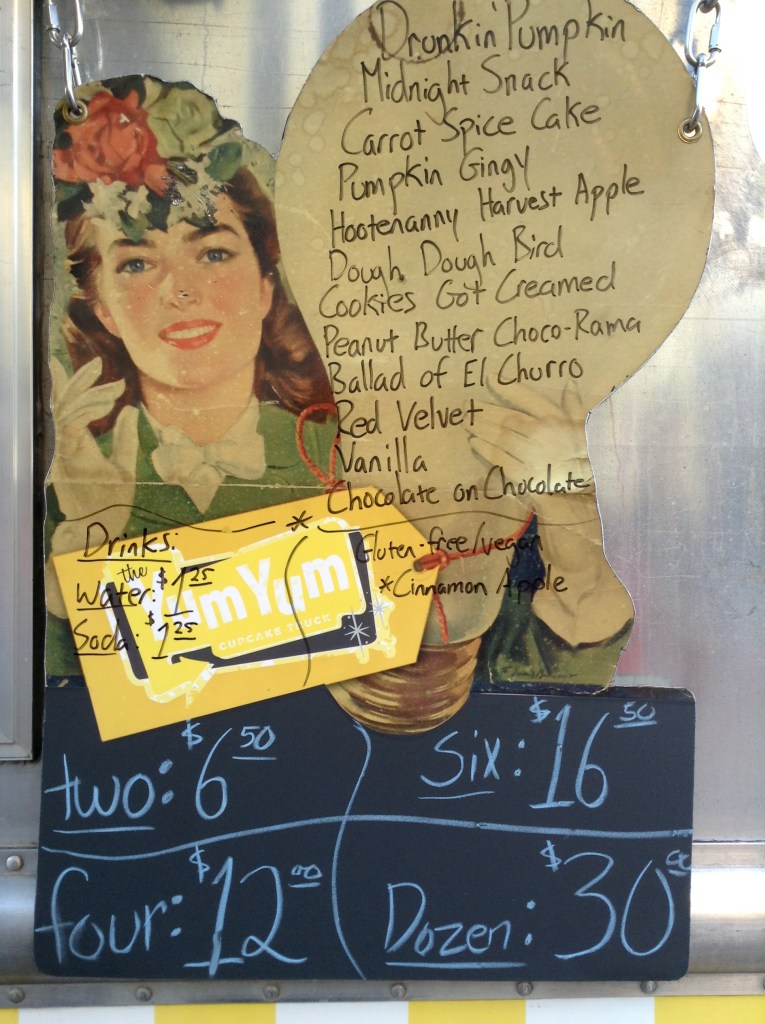 Drunkin' Pumpkin
Midnight Snack
Carrot Spice Cake
Pumpkin Gingy
Hootenanny Harvest Apple
Dough Dough Bird
Cookies Got Creamed
Peanut Butter Choco-Rama
Ballad of El Churro
Red Velvet
Vanilla
Chocolate on Chocolate
*
Gluten-free/vegan
*Cinnamon Apple
Drinks:
Water: $1.25
Soda: $1.25
the
YumYum
CUPCAKE TRUCK
two: $6 50
Six: $16 50
four: $12 00
Dozen: $30 00